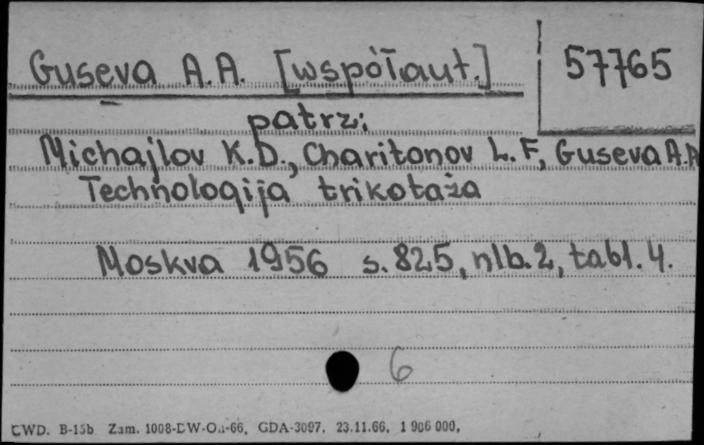 Guseva A.A. [współaut.]
57765
patrz:
Michajlov K.D., Charitonov L.F, Guseva A.A
Technologija trikotaža
Moskva 1956 s. 825, nlb. 2, tabl. 4.
6
CWD. B-15b Zam. 1008-DW-Oa-66, GDA-3097. 23.11.66, 1 906 000,